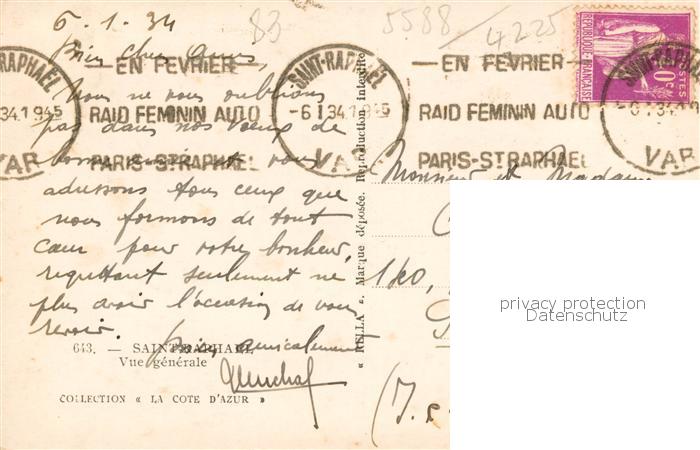 6.1.34
83
5588
4225
Bien chers amis,
Nous ne vous oublions
pas dans nos vœux de
bonne année et vous
adressons tous ceux que
nous formons de tout
cœur pour votre bonheur,
regrettant seulement ne
plus avoir l'occasion de vous
revoir.
Bien amicalement
643. — SAINT-RAPHAEL
Vue générale
COLLECTION « LA COTE D'AZUR »
« RELLA ». Marque déposée. Reproduction interdite
T-RAPHAËL
34.1 945
VAR
— EN FEVRIER —
RAID FEMININ AUTO
PARIS-ST RAPHAEL
SAINT-RAPHAËL
-6 I 34.1 945
VAR
— EN FEVRIER —
RAID FEMININ AUTO
PARIS-ST RAPHAEL
SAINT-RAPHAËL
VAR
REPUBLIQUE FRANÇAISE
POSTES
Monsieur et Madame
140,
privacy protection
Datenschutz